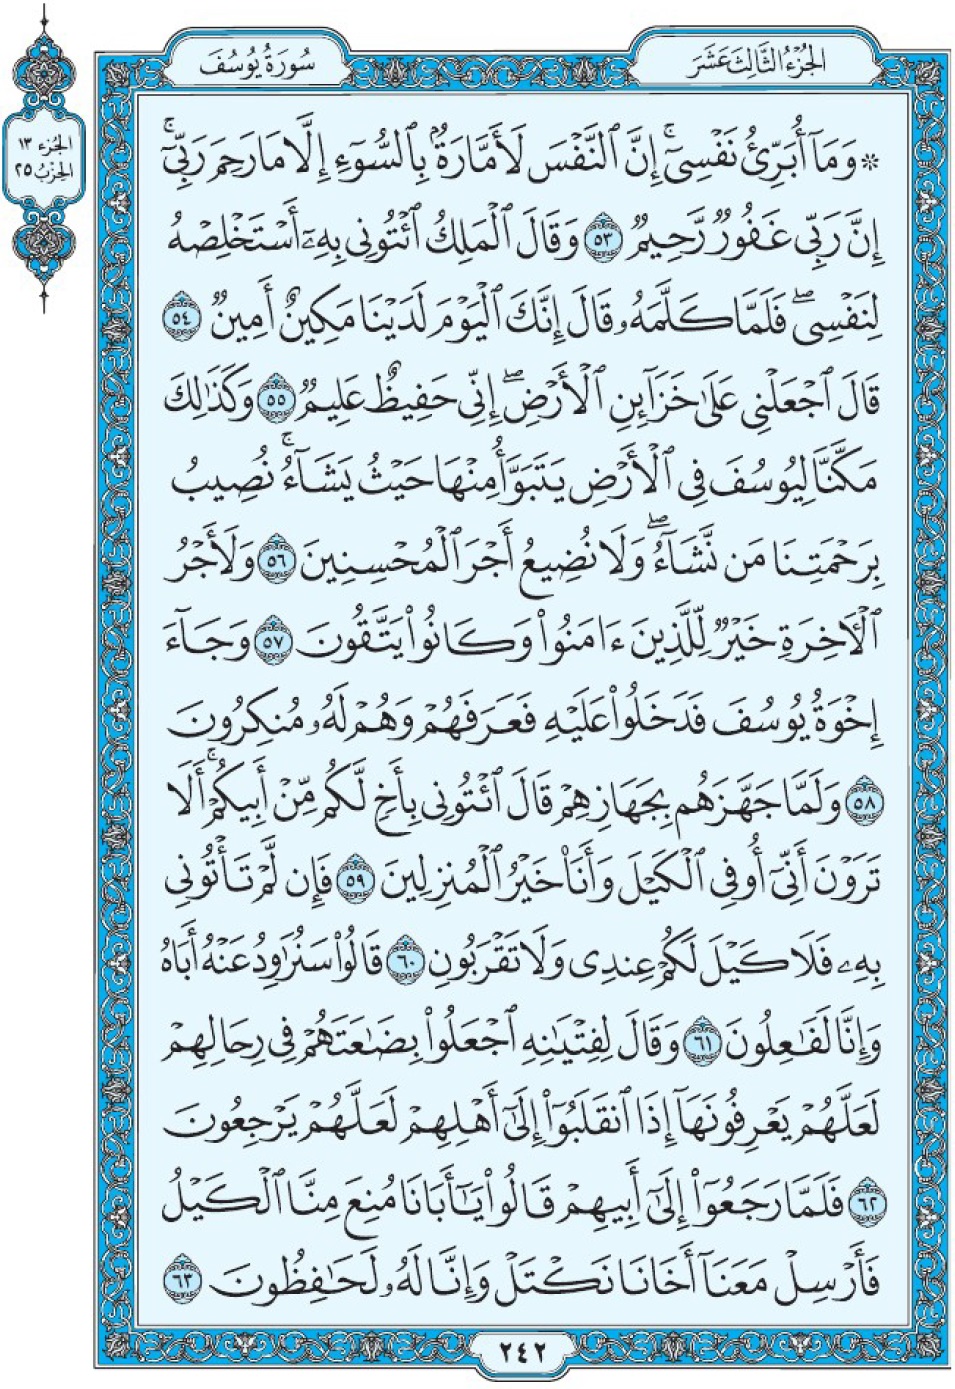 الجُزْءُ الثَّالِثَ عَشَرَ
سُورَةُ يُوسُفَ
الجُزء ١٣
الحِزْبُ ٢٥
۞ وَمَآ أُبَرِّئُ نَفْسِىٓۚ إِنَّ ٱلنَّفْسَ لَأَمَّارَةُۢ بِٱلسُّوٓءِ إِلَّا مَا رَحِمَ رَبِّىٓۚ
إِنَّ رَبِّى غَفُورٌ رَّحِيمٌ ٥٣ وَقَالَ ٱلْمَلِكُ ٱئْتُونِى بِهِۦٓ أَسْتَخْلِصْهُ
لِنَفْسِىۖ فَلَمَّا كَلَّمَهُۥ قَالَ إِنَّكَ ٱلْيَوْمَ لَدَيْنَا مَكِينٌ أَمِينٌ ٥٤
قَالَ ٱجْعَلْنِى عَلَىٰ خَزَآئِنِ ٱلْأَرْضِۖ إِنِّى حَفِيظٌ عَلِيمٌ ٥٥ وَكَذَٰلِكَ
مَكَّنَّا لِيُوسُفَ فِى ٱلْأَرْضِ يَتَبَوَّأُ مِنْهَا حَيْثُ يَشَآءُۚ نُصِيبُ
بِرَحْمَتِنَا مَن نَّشَآءُۖ وَلَا نُضِيعُ أَجْرَ ٱلْمُحْسِنِينَ ٥٦ وَلَأَجْرُ
ٱلْـَٔاخِرَةِ خَيْرٌ لِّلَّذِينَ ءَامَنُوا۟ وَكَانُوا۟ يَتَّقُونَ ٥٧ وَجَآءَ
إِخْوَةُ يُوسُفَ فَدَخَلُوا۟ عَلَيْهِ فَعَرَفَهُمْ وَهُمْ لَهُۥ مُنكِرُونَ
٥٨ وَلَمَّا جَهَّزَهُم بِجَهَازِهِمْ قَالَ ٱئْتُونِى بِأَخٍ لَّكُم مِّنْ أَبِيكُمْۚ أَلَا
تَرَوْنَ أَنِّىٓ أُوفِى ٱلْكَيْلَ وَأَنَا۠ خَيْرُ ٱلْمُنزِلِينَ ٥٩ فَإِن لَّمْ تَأْتُونِى
بِهِۦ فَلَا كَيْلَ لَكُمْ عِندِى وَلَا تَقْرَبُونِ ٦٠ قَالُوا۟ سَنُرَٰوِدُ عَنْهُ أَبَاهُ
وَإِنَّا لَفَٰعِلُونَ ٦١ وَقَالَ لِفِتْيَٰنِهِ ٱجْعَلُوا۟ بِضَٰعَتَهُمْ فِى رِحَالِهِمْ
لَعَلَّهُمْ يَعْرِفُونَهَآ إِذَا ٱنقَلَبُوٓا۟ إِلَىٰٓ أَهْلِهِمْ لَعَلَّهُمْ يَرْجِعُونَ
٦٢ فَلَمَّا رَجَعُوٓا۟ إِلَىٰٓ أَبِيهِمْ قَالُوا۟ يَٰٓأَبَانَا مُنِعَ مِنَّا ٱلْكَيْلُ
فَأَرْسِلْ مَعَنَآ أَخَانَا نَكْتَلْ وَإِنَّا لَهُۥ لَحَٰفِظُونَ ٦٣
٢٤٢